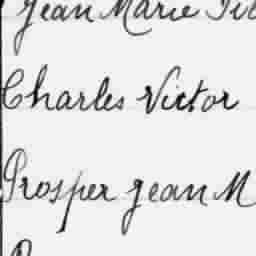 Jean Marie
Charles Victor
Prosper Jean M